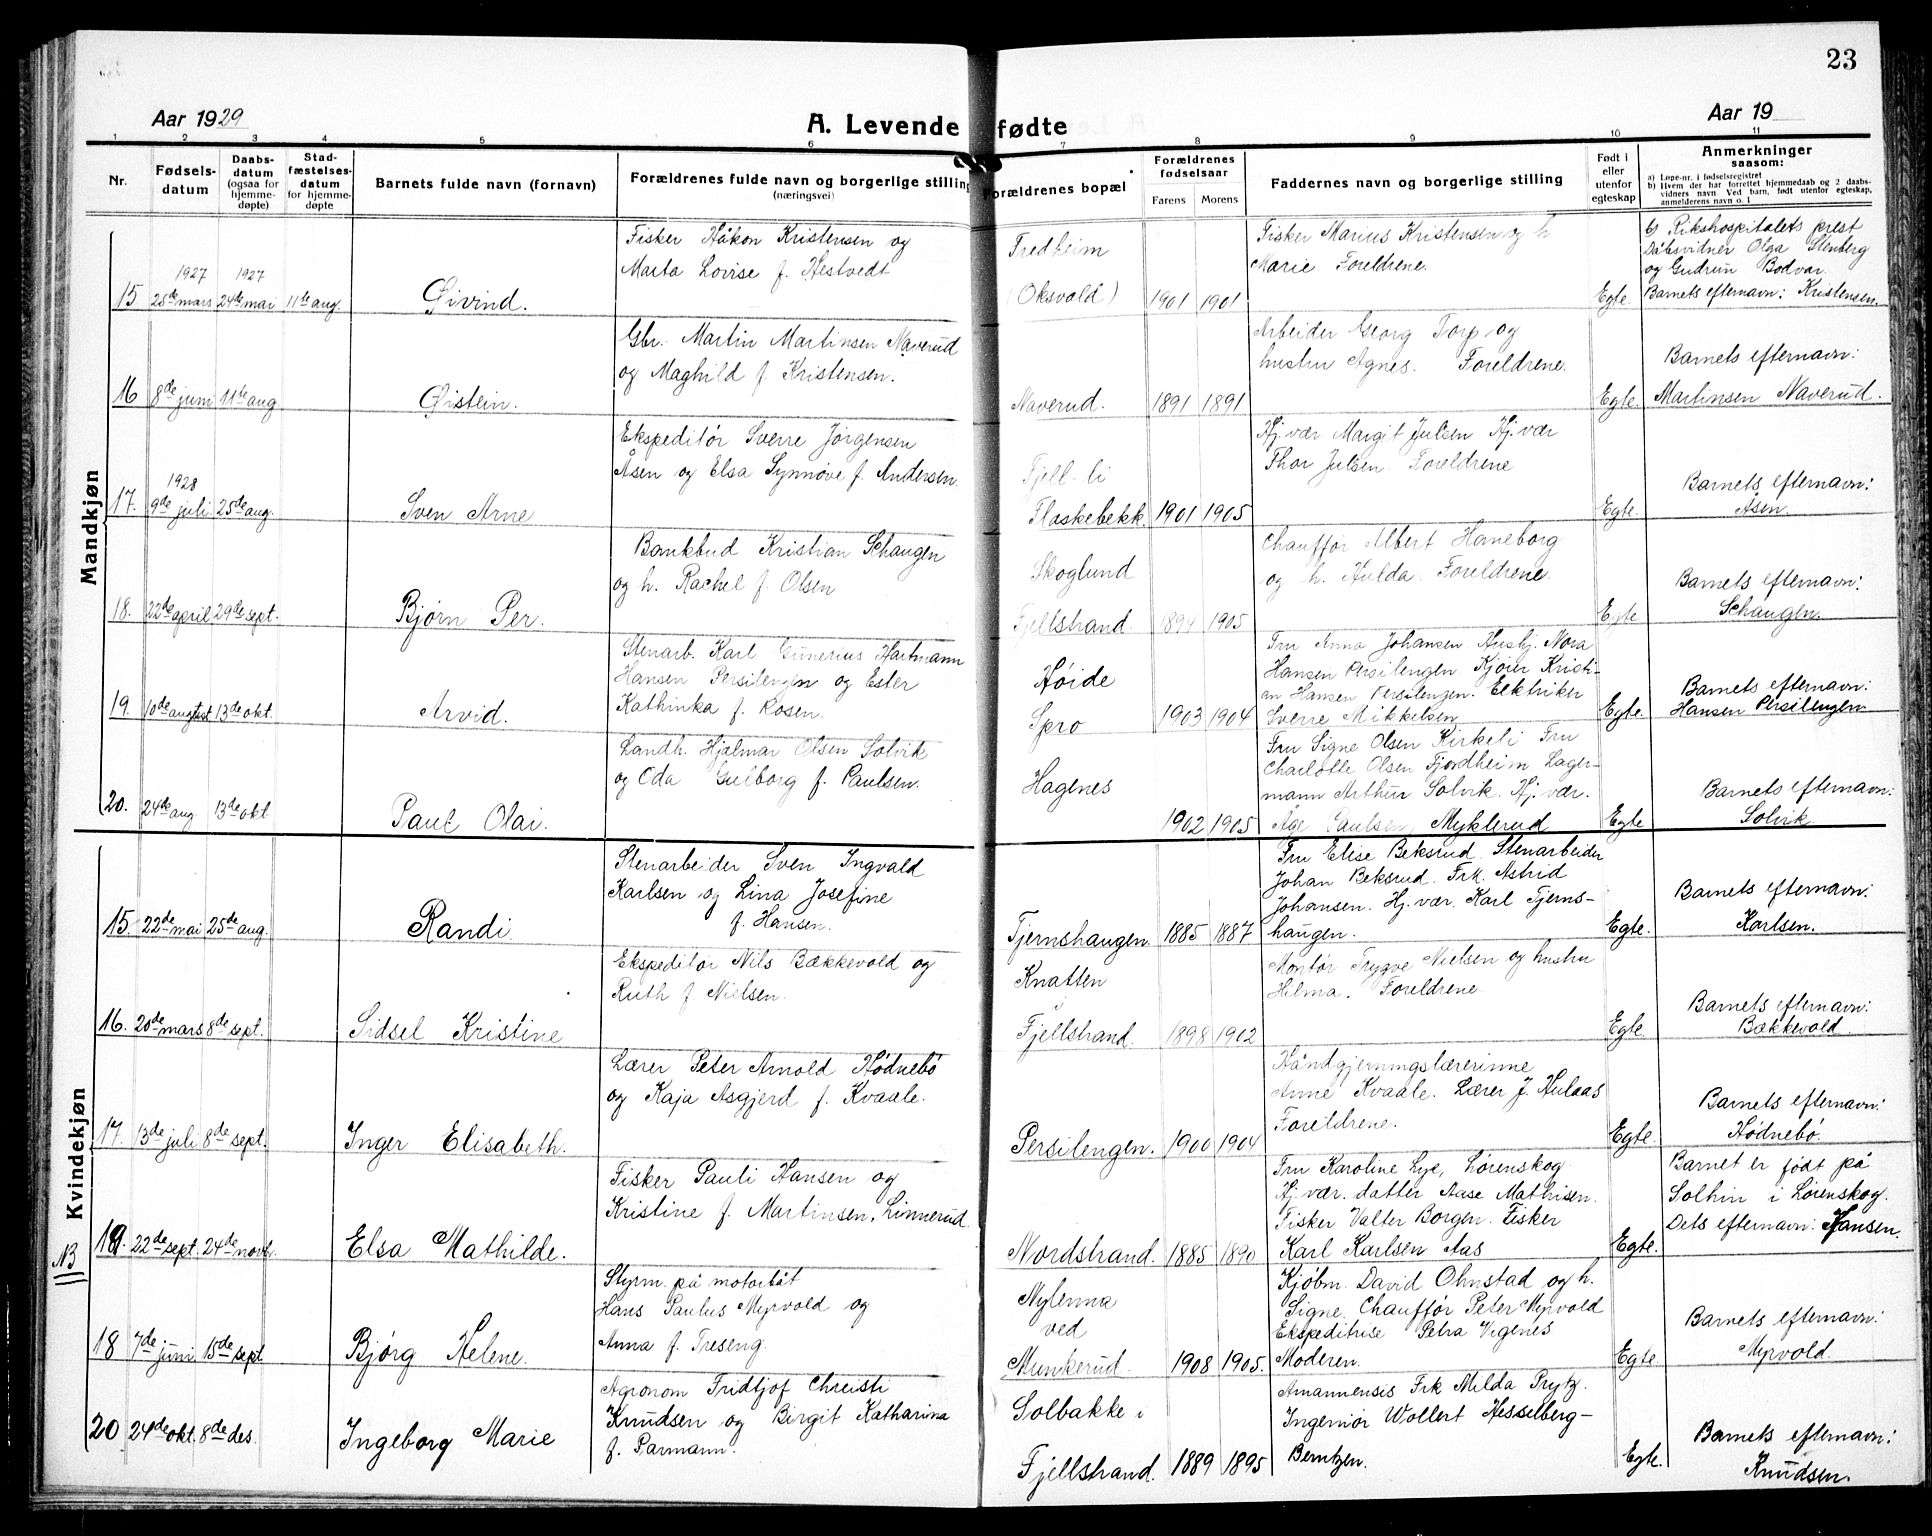 23
Aar 1929
A. Levende fødte
Aar 19
1 2 3 4 5 6 7 8 9 10 11
Nr.
Fødsels-
datum
Daabs-
datum
(ogsaa for
hjemme-
døpte)
Stad-
fæstelses-
datum
for hjemme-
døpte
Barnets fulde navn (fornavn)
Forældrenes fulde navn og borgerlige stilling
(næringsvei)
Forældrenes bopæl
Forældrenes
fødselsaar
Farens Morens
Faddernes navn og borgerlige stilling
Født i
eller
utenfor
egteskap
Anmerkninger
saasom:
a) Løpe-nr. i fødselsregistret
b) Hvem der har forrettet hjemmedaab og 2 daabs-
vidners navn. Ved barn, født utenfor egteskap,
anmelderens navn o. l
Mandkjøn
15
1927
25de mars
1927
24de mai
11te aug.
Øivind.
Fisker Håkon Kristensen og
Marta Lovise f. Hestvedt
Fredheim
(Oksvold)
1901 1901
Fisker Marius Kristensen og h
Marie Foreldrene.
Egte.
b) Rikshospitalets prest
Dåbsvidner Olga Stenberg
og Gudrun Bodvar.
Barnets efternavn: Kristensen.
16
8de juni
11te aug
Øistein.
Gbr. Martin Martinsen Naverud
og Maghild f. Kristensen.
Naverud.
1891 1891
Arbeider Georg Torp og
hustru Agnes. Foreldrene.
Egte.
Barnets efternavn:
Martinsen Naverud.
17.
1928
9de juli.
25de aug.
Sven Arne
Ekspeditør Sverre Jørgensen
Åsen og Elsa Synnøve f. Andersen.
Fjell-li
Flaskebekk
1901 1905
Hj. vær Margit Julsen Hj. vær
Thor Julsen. Foreldrene
Egte.
Barnets efternavn:
Åsen.
18.
22de april
29de sept.
Bjørn Per.
Bankbud Kristian Schaugen
og h. Rachel f. Olsen
Skoglund
Fjellstrand.
1894 1905
Chauffør Albert Haneborg
og h. Hulda. Foreldrene.
Egte
Barnets efternavn:
Schaugen.
19.
10de august
13de okt.
Arvid.
Stenarb. Karl Gunerius Hartmann
Hansen Persilengen og Ester
Kathinka f. Rosen.
Høide
Spro
1903 1904
Fru Anna Johansen Husbj. Nora
Hansen Persilengen Kjører Kristi-
an Hansen Persilengen. Elektriker
Sverre Mikkelsen
Egte.
Barnets efternavn:
Hansen Persilengen
20.
24de aug
13de okt
Paul Olai.
Landh. Hjalmar Olsen Solvik
og Oda Gulborg f. Paulsen.
Hagenes
1902 1905
Fru Signe Olsen Kirkeli Fru
Charlotte Olsen Fjordheim Lager-
mann Arthur Solvik. Hj. vær.
Åge Paulsen Myklerud
Egte
Barnets efternavn:
Solvik.
Kvindekjøn
15.
22de mai
25de aug.
Randi.
Stenarbeider Sven Ingvald
Karlsen og Lina Josefine
f. Hansen.
Tjernshaugen.
1885 1887
Fru Elise Beksrud. Stenarbeider
Johan Beksrud. Frk. Astrid
Johansen. Hj. vær. Karl Tjerns-
haugen.
Egte.
Barnets efternavn:
Karlsen.
16.
20de mars
8de sept.
Sidsel Kristine
Ekspeditør Nils Bækkevold og
Ruth f Nielsen.
Knatten
i
Fjellstrand.
1898 1902
Montør Trygve Nielsen og hustru
Hilma. Foreldrene.
Egte.
Barnets efternavn:
Bækkevold.
17.
13de juli
8de sept.
Inger Elisabeth.
Lærer Peter Arnold Hødnebø
og Kaja Asgjerd f. Kvaale.
Persilengen.
1900 1904
Håndgjerningslærerinne
Anne Kvaale. Lærer J. Hulaas
Foreldrene.
Egte.
Barnets efternavn:
Hødnebø.
NB
19.
22de sept.
24de novb.
Elsa Mathilde.
Fisker Pauli Hansen og
Kristine f. Martinsen, Linnerud.
Nordstrand.
1885 1890
Fru Karoline Lye, Lørenskog
Hj. vær. datter Aase Mathisen.
Fisker Valter Borgen. Fisker
Karl Karlsen Aas
Egte.
Barnet er født på
Solhin i Lørenskog.
Dets efternavn: Hansen.
18
7de juni
15de sept
Bjørg Helene.
Styrm. på motorbåt
Hans Paulus Myrvold og
Anna f. Treseng.
Nylenna
ved
Munkerud.
1908 1905.
Kjøbm. David Ohnstad og h.
Signe. Chauffør Peter Myrvold
Ekspeditrise Petra Vigenes
Moderen.
Egte.
Barnets efternavn:
Myrvold.
20
24de okt.
8de des.
Ingeborg Marie
Agronom Fridtjof Christi
Knudsen og Birgit Katharina
f. Parmann.
Solbakke i
Fjellstrand.
1889 1895
Amanuensis Frk Milda Prytz.
Ingeniør Wollert Hesselberg-
Berntzen.
Egte.
Barnets efternavn:
Knudsen.